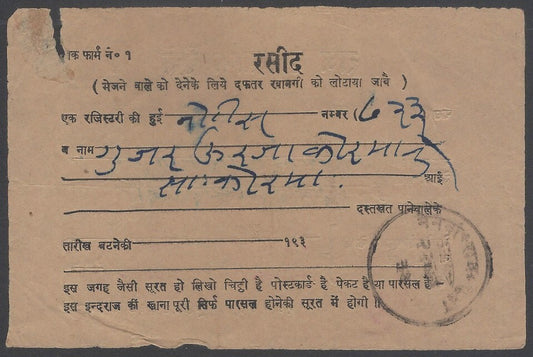 डाक फार्म नं० १
रसीद
( भेजने वाले को देनेके लिये दफतर रवानगी को लौटाया जावै )
एक रजिस्टरी की हुई नोटीस नम्बर ७२३
व नाम गुजर
सा. कोरमा. आई
दस्तखत पानेवालेके
तारीख बटनेकी १९३
इस जगह जैसी सूरत हो लिखो चिट्ठी है पोस्टकार्ड है पेकट है या पारसल है
इस इन्दराज की खाना पूरी सिर्फ पारसल होनेकी सूरत में होगी ।